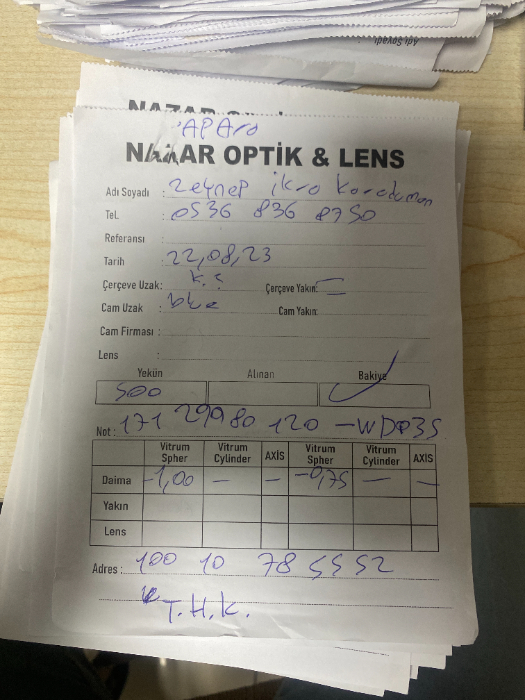 Adı Soyadı
NAZAR
APAro
NAZAR OPTİK & LENS
Adı Soyadı : Zeynep ikra Karaduman
Tel. : 0536 836 8750
Referansı :
Tarih : 22,08,23
Çerçeve Uzak: K.Ş Çerçeve Yakın: —
Cam Uzak : blue Cam Yakın:
Cam Firması :
Lens :
Yekün Alınan Bakiye
500
Not : 171 29980 120 -WDP35
Vitrum Spher Vitrum Cylinder AXİS Vitrum Spher Vitrum Cylinder AXİS
Daima -1,00 — — -0,75 — —
Yakın
Lens
Adres : 100 10 78 55 52
T.H.K.